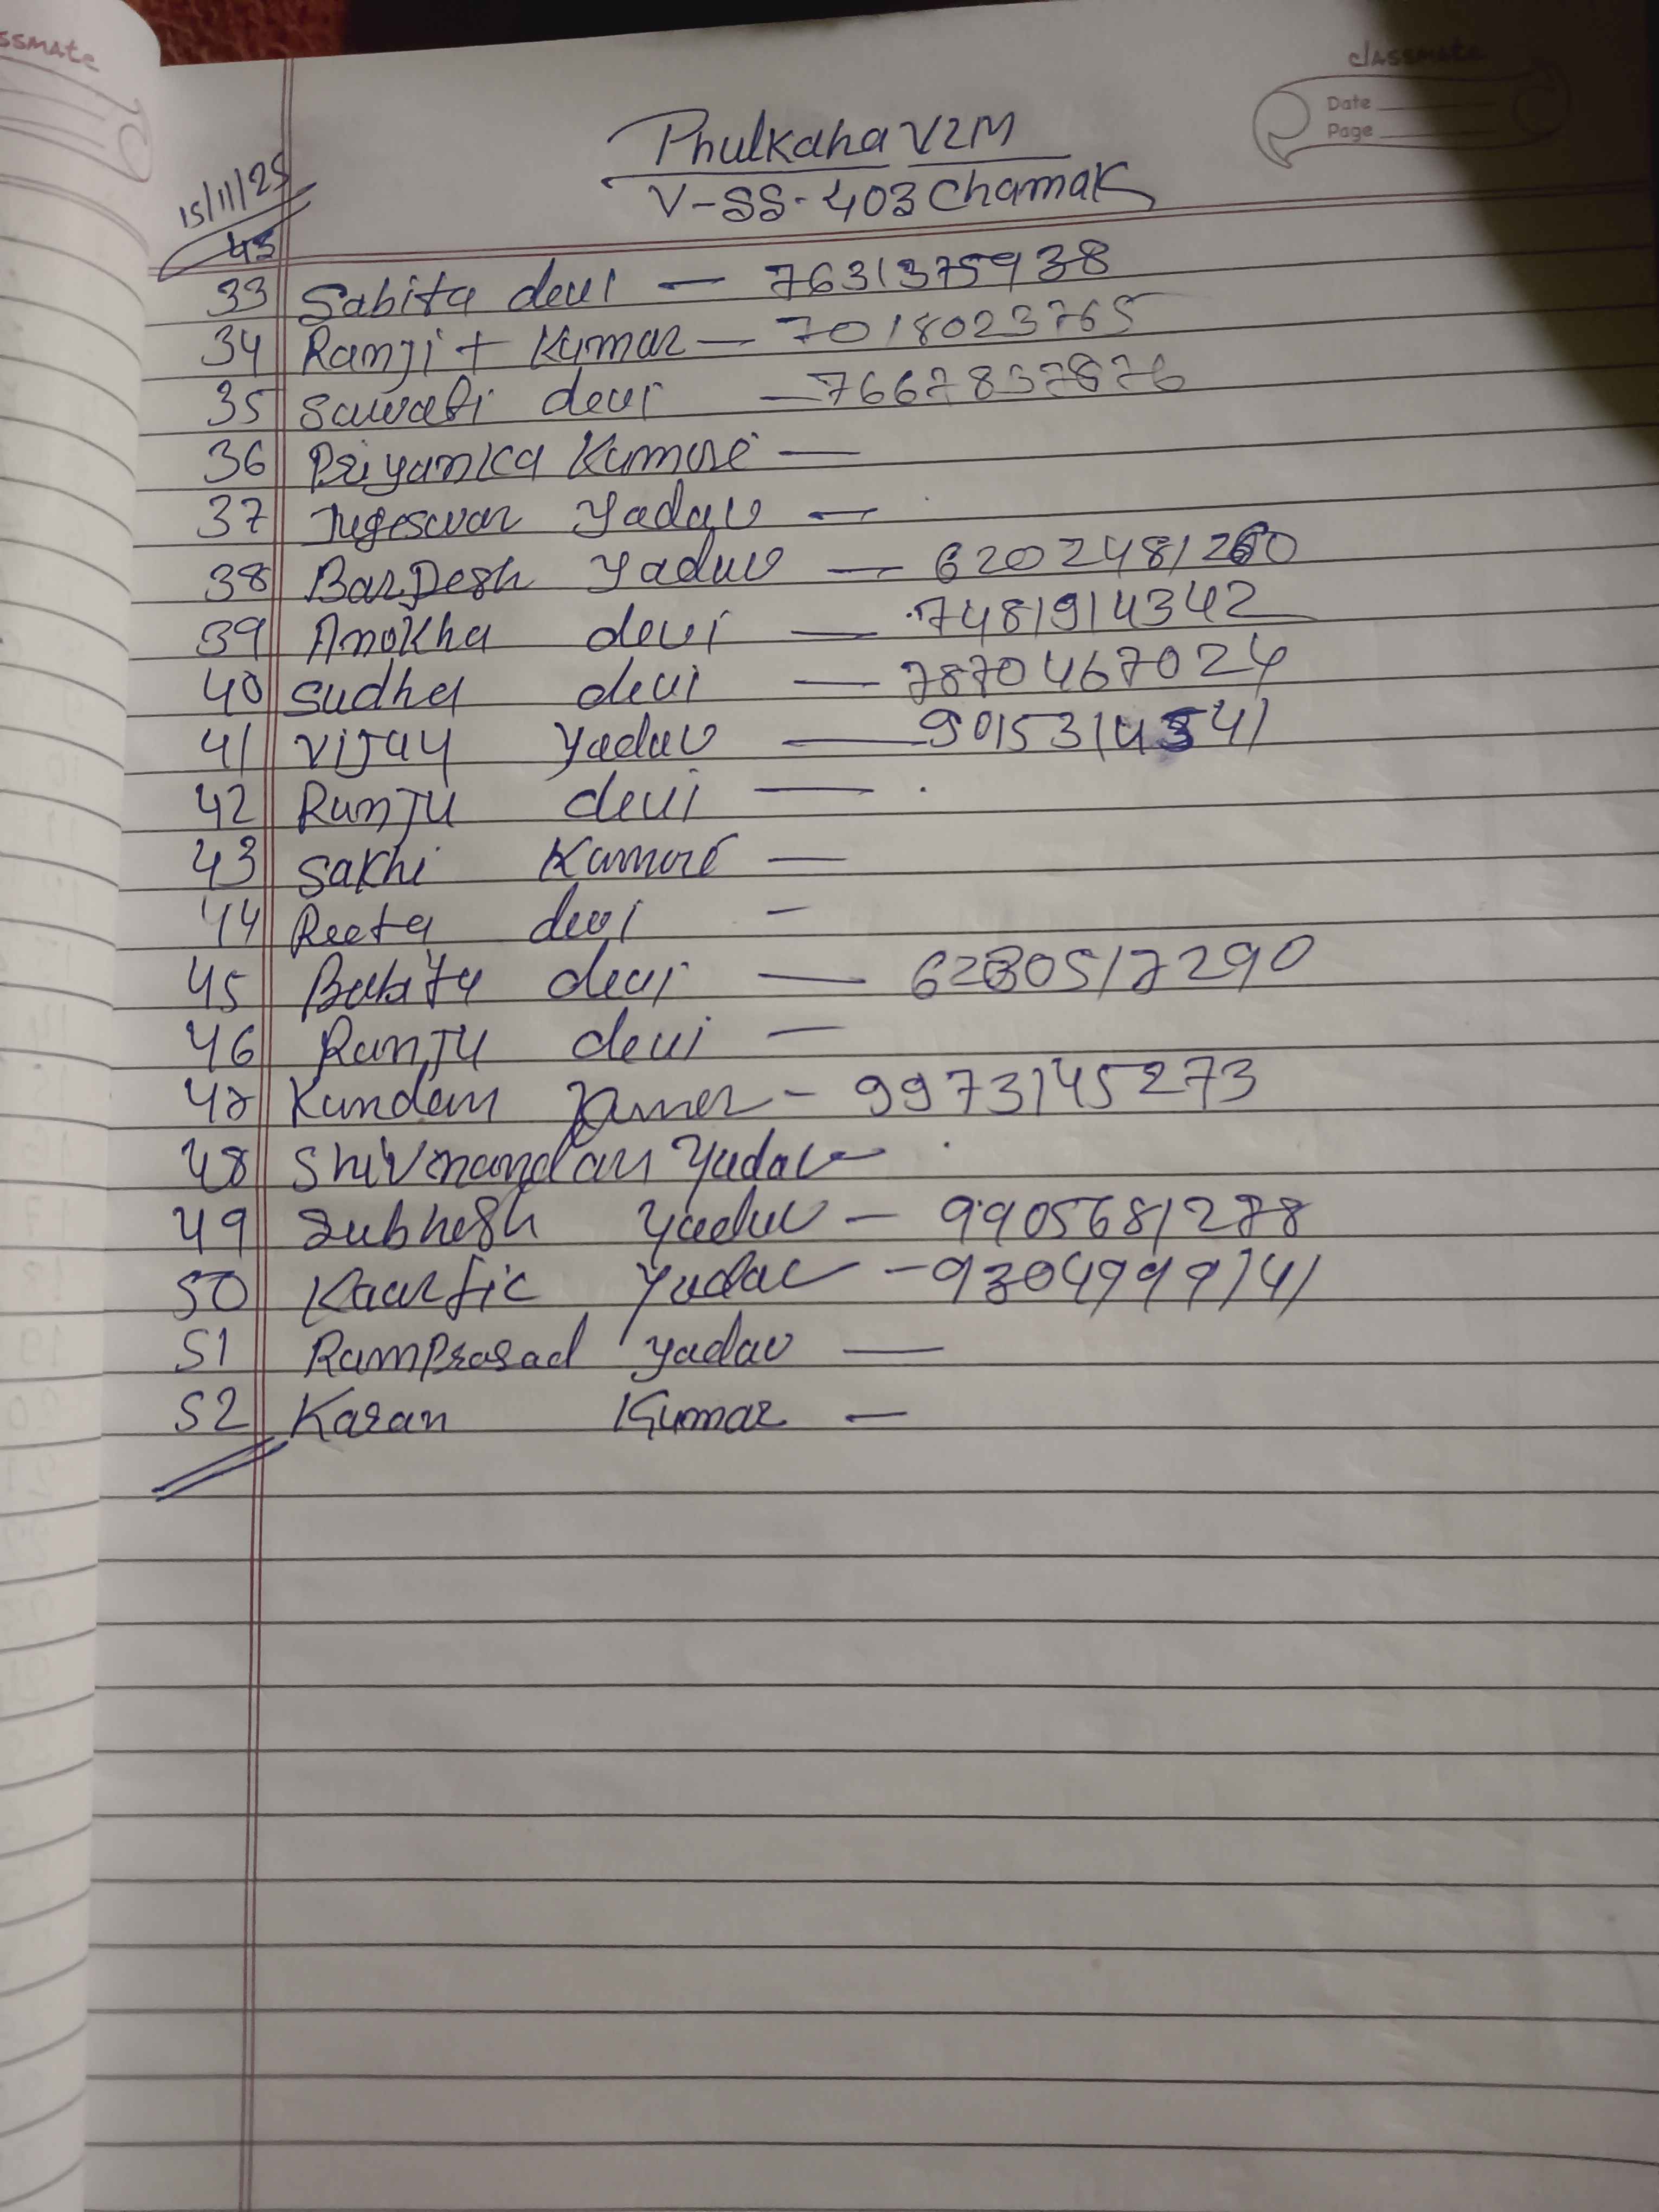 ssmate
classmate
Date
Page
15/11/25
Phulkaha VLM
V-SS-403 Chamak
43
33 Sabita devi — 7631375938
34 Ranjit Kumar — 7018023765
35 devi — 7667837876
36 Priyanka Kumari —
37 Jugeswar Yadav —
38 Yadav — 6202481260
39 Anokha devi — 7481914342
40 Sudha devi — 7870467024
41 Vijay Yadav —
42 Ranju devi —
43 Sakhi Kumari —
44 Reeta devi —
45 Babita devi —
46 Ranju devi —
47 Kundan Kumar - 9973145273
48 Shivnandan Yadav -
49 Yadav —
50 Yadav -
51 RamPrasad Yadav —
52 Karan Kumar —